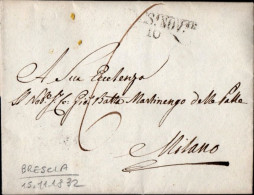 10
A Sua Eccellenza
Il Nob. Sig. Co. Gio. Batta Martinengo delle Palle
Milano
BRESCIA
15.11.1832